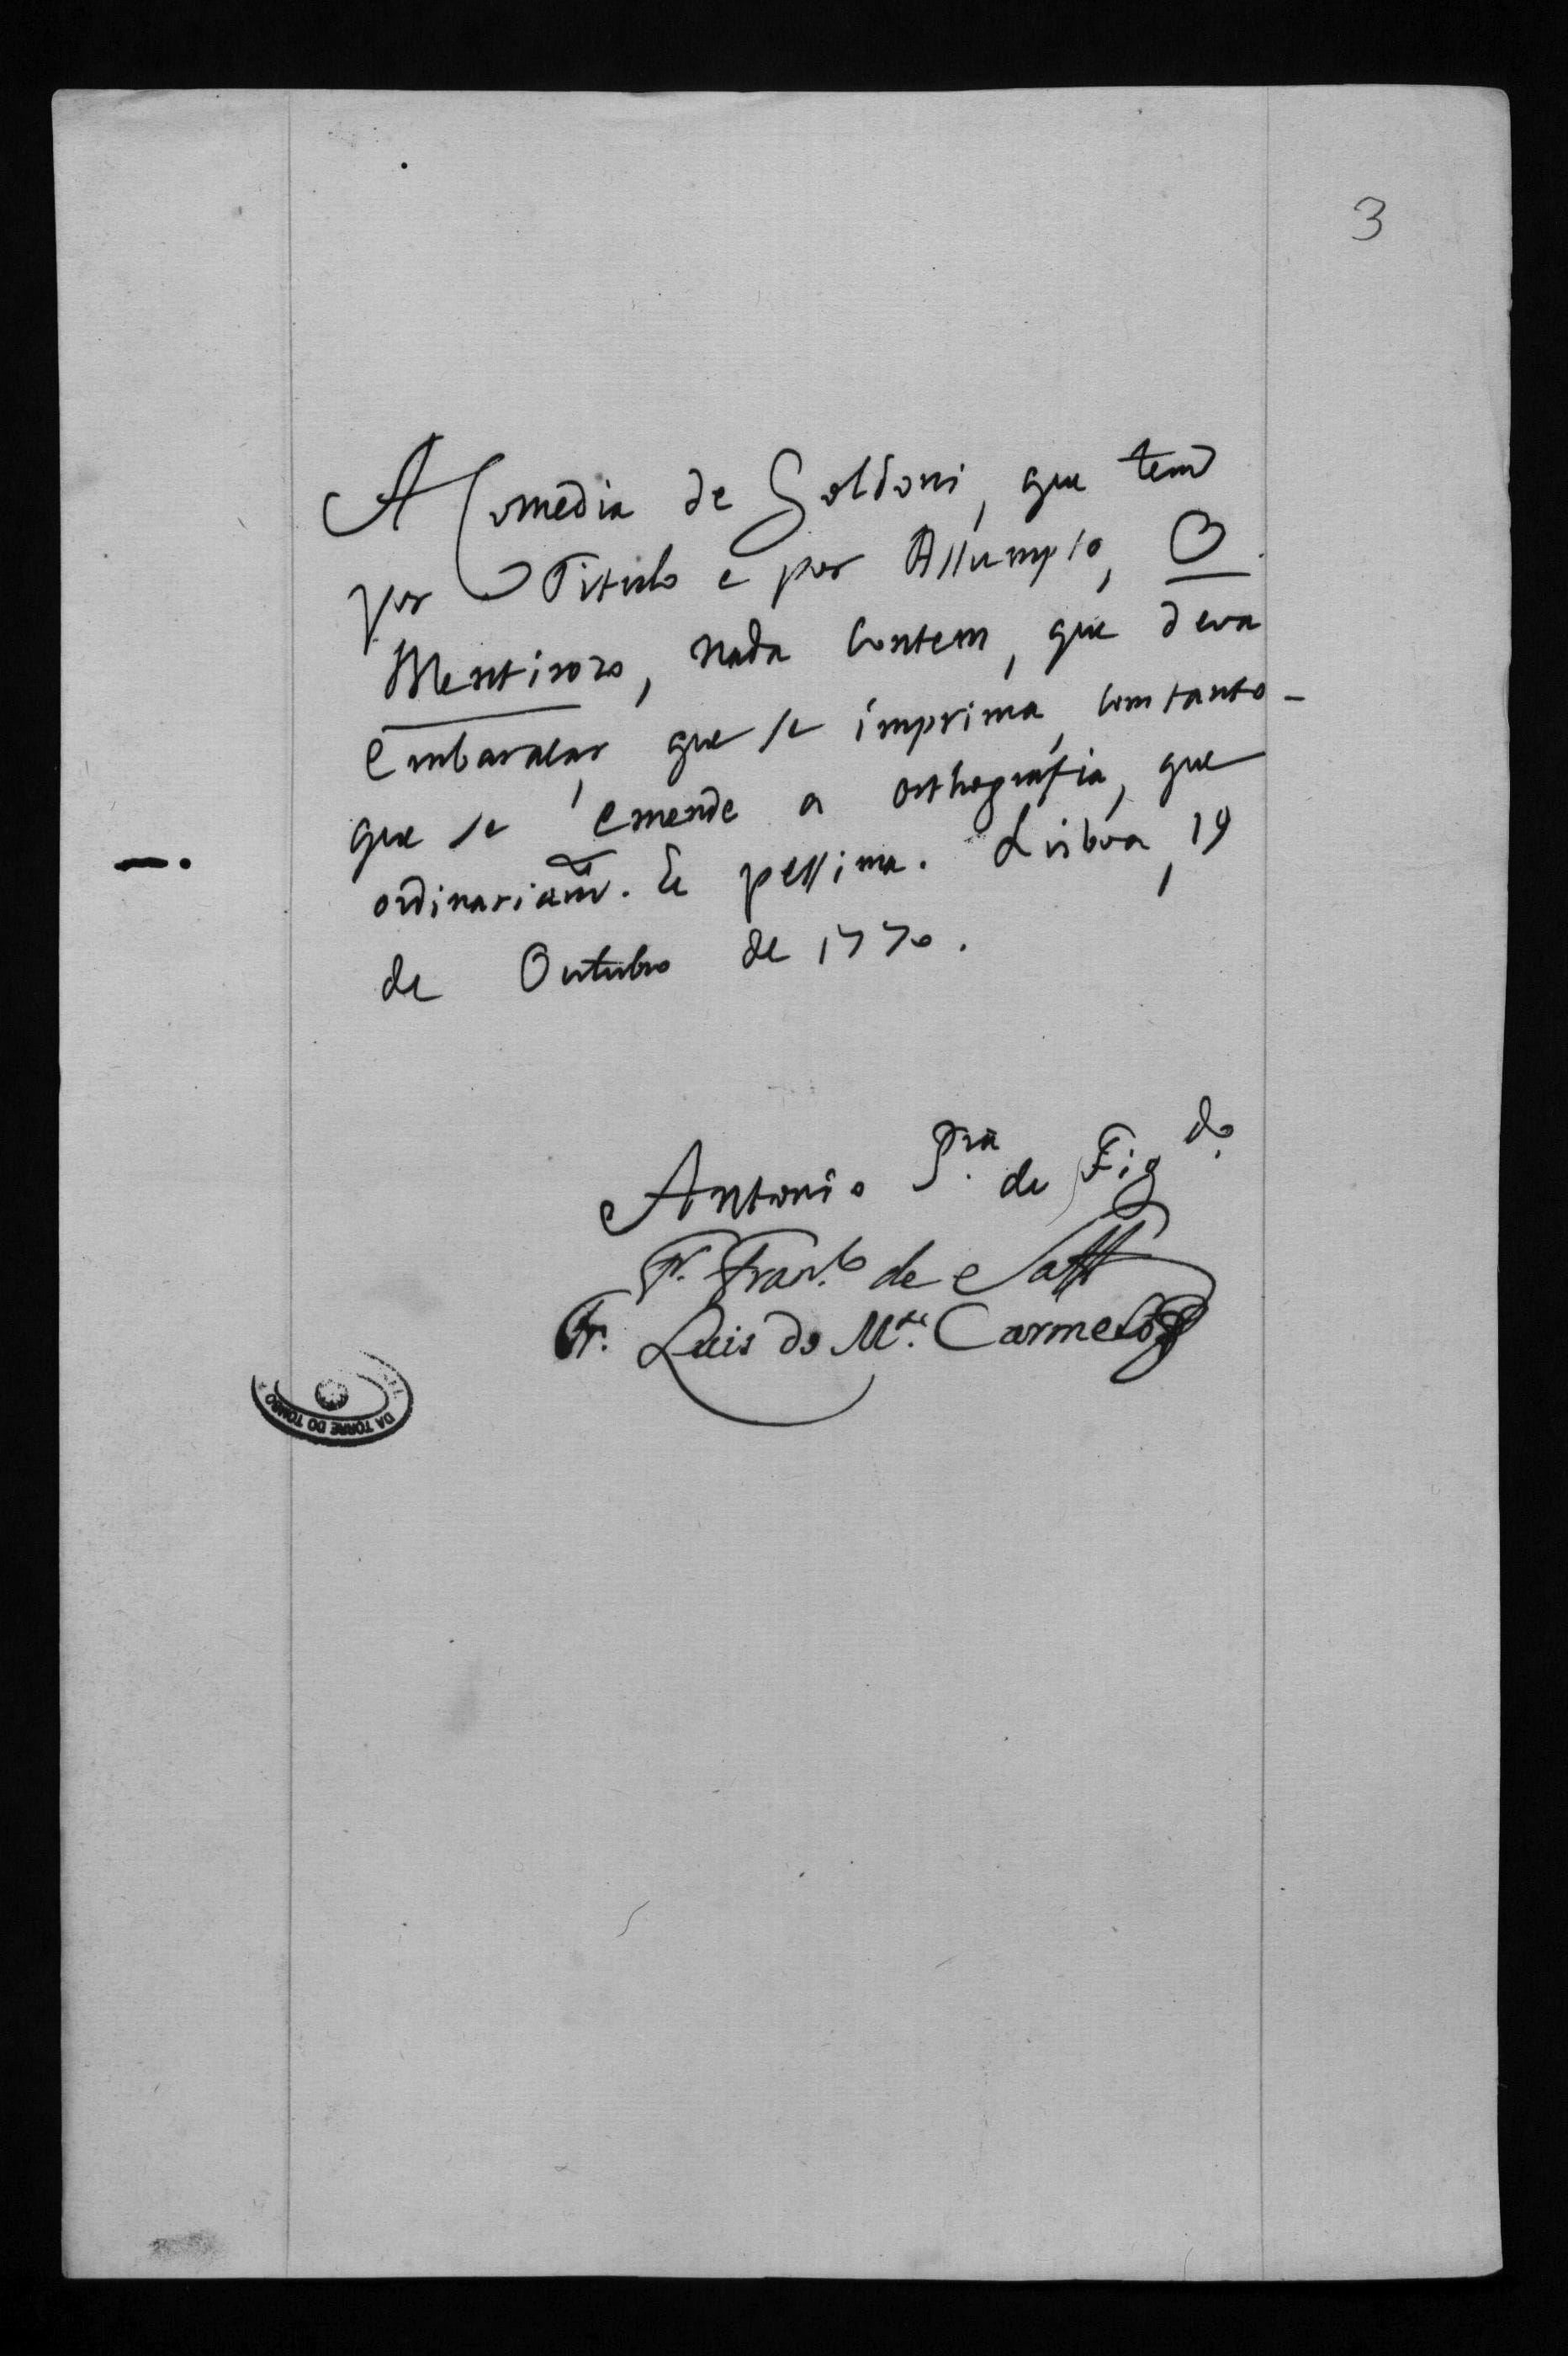 3
A Comedia de Goldoni, que tem
por Titulo e por Assumpto, O
Mentirozo, nada contem, que deva
embaraçar, que se imprima, com tanto-
que se emende a orthografia, que
ordinariam.te he pessima. Lisboa, 19
de Outubro de 1770.
Antonio P.ra de Fig.do
Fr. Fran.co de S.
Fr. Luis do M.te Carmelo
DA TORRE DO TOMBO